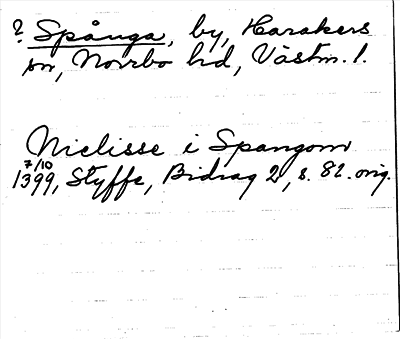 ? Spånga, by, Harakers
sn, Norrbo hd, Västm. l.
Niclisse i Spangom
7/10
1399, Styffe, Bidrag 2, s. 82. orig.